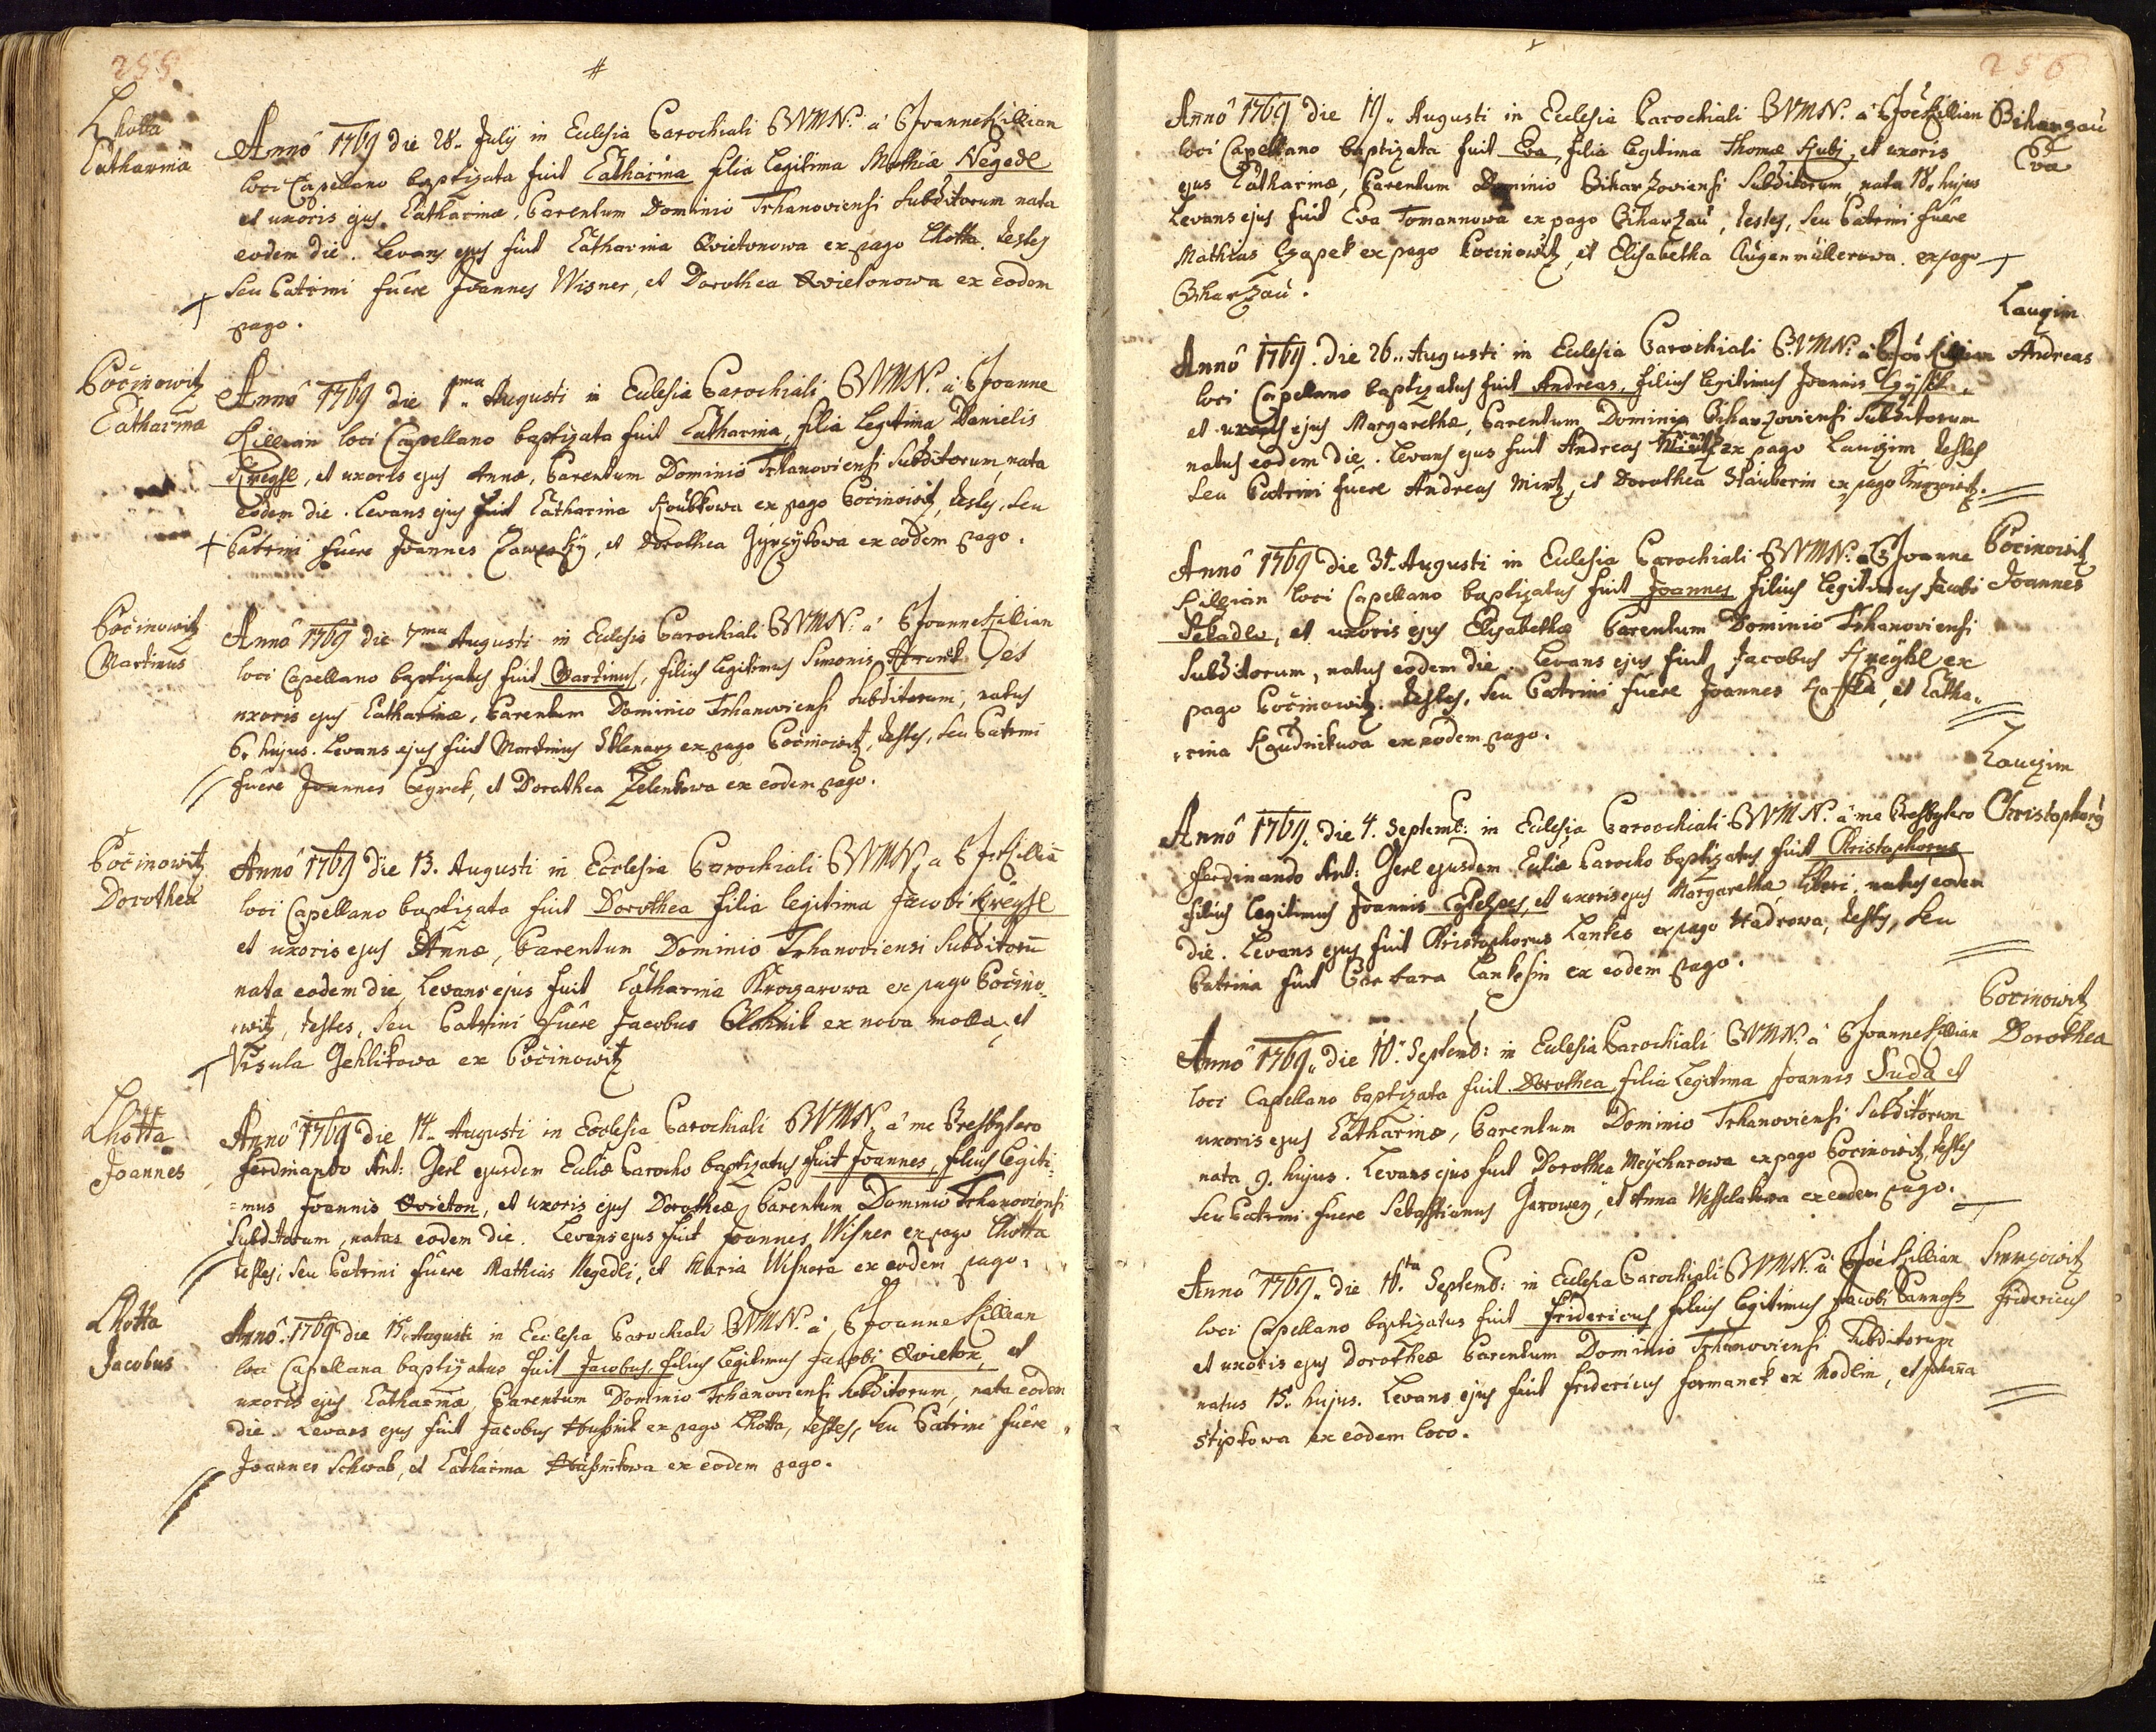 255
#
Lhotta
Catharina
Annô 1769 die 28. July in Ecclesia Parochiali BVMN. â P Joanne Killian
loci Capellano baptizata fuit Catharina filia legitima Mathiæ Negedl
et uxoris ejus Catharinæ, Parentum Dominio Trhanoviensi Subditorum nata
eodem die. Levans ejus fuit Catharina Qvietonowa ex pago Lhotta. testes
seu Patrini fuêre Joannes Wisner, et Dorothea Qvietonowa ex eodem
pago.
Počinowitz
Catharina
Annô 1769 die 1ma Augusti in Eclesia Parochiali BVMN. â P Joanne
Killian loci Capellano baptizata fuit Catharina, filia legitima Danielis
Kreysl, et uxoris ejus Annæ, Parentum Dominio Trhanoviensi Subditorum, nata
eodem die. Levans ejus fuit Catharina Koubkowa ex pago Počinowitz, testes, seu
Patrini fuêre Joannes, et Dorothea ex eodem pago.
Počinowitz
Martinus
Annô 1769 die 7ma Augusti in Eclesia Parochiali BVMN. â P Joanne Killian
loci Capellano baptizatus fuit Martinus, filius legitimus Simonis et
uxoris ejus Catharinæ, Parentum Dominio Trhanoviensi Subditorum, natus
6. hujus. Levans ejus fuit Martinus Sklenarz ex pago Počinowitz, testes, seu Patrini
fuêre Joannes, et Dorothea Zelenkowa ex eodem pago.
Počinowitz
Dorothea
Annô 1769 die 13. Augusti in Ecclesia Parochiali BVMN. a P Killiā
loci Capellano baptizata fuit Dorothea filia legitima Jacobi Kreysl
et uxoris ejus Annæ, Parentum Dominio Trhanoviensi Subditorū
nata eodem die, Levans ejus fuit Catharina ex pago Počino-
witz, testes, seu Patrini fuêre Jacobus ex nova molla, et
Visula Jehlikowa ex Počinowitz
Lhotta
Joannes
Annô 1769 die 14. Augusti in Ecclesia Parochiali BVMN. â me Presbytero
Ferdinando Ant: Gerl ejusdem Ecliæ Parocho baptizatus fuit Joannes, filius legiti-
=mus Joannis Qvieton, et uxoris ejus Dorotheæ, Parentum Dominio Trhanoviensi
Subditorum, natus eodem die. Levans ejus fuit Joannes Wisner ex pago Lhotta
testes, seu Patrini fuêre Mathias Negedli, et Maria Wisnera ex eodem pago.
Lhotta
Jacobus
Annô 1769 die 15. Augusti in Ecclesia Parochiali BVMN. â P Joanne Killian
loci Capellana baptizatus fuit Jacobus, filius legitimus Jacobi Qvieton, et
uxoris ejus Catharinæ, Parentum Dominio Trhanoviensi Subditorum, nata eodem
die. Levans ejus fuit Jacobus Hussnik ex pago Lhotta, testes, seu Patrini fuêre
Joannes Schwab, et Catharina Hussnikowa ex eodem pago.
256
Annô 1769 die 19. Augusti in Ecclesia Parochiali BVMN. â P Joē Killian
loci Capellano baptizata fuit Eva, filia legitima Thomæ Kubj, et uxoris
ejus Catharinæ, Parentum Dominio Biharzoviensi Subditorum, nata 18. hujus
Levans ejus fuit Eva Tomannowa ex pago Biharzau, testes, seu Patrini fuêre
Mathias Czapek ex pago Počinowitz, et Elisabetha Augenmüllerowa ex pago
Biharzau.
Biharzau
Eva
Annô 1769. die 26. Augusti in Eclesia Parochiali BVMN. â P Joē Killian
loci Capellano baptizatus fuit Andreas, filius legitimus Joannis
et uxoris ejus Margarethæ, Parentum Dominio Biharzoviensi Subditorum
natus eodem die. Levans ejus fuit Andreas ex pago Lauzim, testes
seu Patrini fuêre Andreas Mintz, et Dorothea Stauberin ex pago
Lauzim
Andreas
Annô 1769 die 31. Augusti in Eclesia Parochiali BVMN. â P Joanne
Killian loci Capellano baptizatus fuit Joannes filius legitimus Jacobi
Sekadlo, et uxoris ejus Elisabethæ Parentum Dominio Trhanoviensi
Subditorum, natus eodem die. Levans ejus fuit Jacobus Kreysl ex
pago Počinowitz. testes, seu Patrini fuêre Joannes, et Catha-
rina ex eodem pago.
Počinowitz
Joannes
Annô 1769. die 4. Septemb: in Ecclesia Parochiali BVMN. â me Presbytero
Ferdinando Ant: Gerl ejusdem Ecliæ Parocho baptizatus fuit Christophorus
filius legitimus Joannis, et uxoris ejus Margarethæ, liberi, natus eodem
die. Levans ejus fuit Christophorus Lankes ex pago Hadrowa, testes, seu
Patrina fuit Barbara Lankesin ex eodem pago.
Lauzim
Christophorq
Annô 1769. die 10. Septemb: in Eclesia Parochiali BVMN. â P Joanne Killian
loci Capellano baptizata fuit Dorothea, filia legitima Joannis Duda et
uxoris ejus Catharinæ, Parentum Dominio Trhanoviensi Subditorum
nata 9. hujus. Levans ejus fuit Dorothea ex pago Počinowitz, testes
seu Patrini fuere Sebastianus, et Anna Wesselakowa ex eodem pago.
Počinowitz
Dorothea
Annô 1769. die 16.ta Septemb: in Eclesia Parochiali BVMN. â P Joē Killian
loci Capellano baptizatus fuit Fridericus filius legitimus Jacobi
et uxoris ejus Dorotheæ Parentum Dominio Trhanoviensi Subditorum
natus 15. hujus. Levans ejus fuit Fridericus Formanek ex Modlin, et Johaña
Stipkowa ex eodem loco.
Smrzowitz
Fridericus